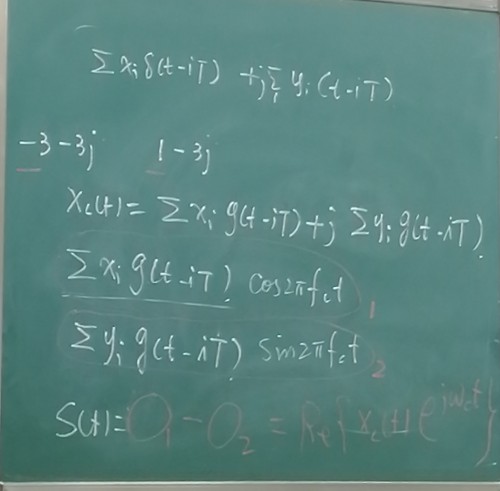 Σ xᵢ δ(t-iT) + j Σ yᵢ (t-iT)
-3-3j 1-3j
X_c(t) = Σ xᵢ g(t-iT) + j Σ yᵢ g(t-iT)
Σ xᵢ g(t-iT) cos2πf_ct 1
Σ yᵢ g(t-iT) sin2πf_ct 2
S(t) = O₁ - O₂ = Re{X_c(t) e^{jω_ct}}